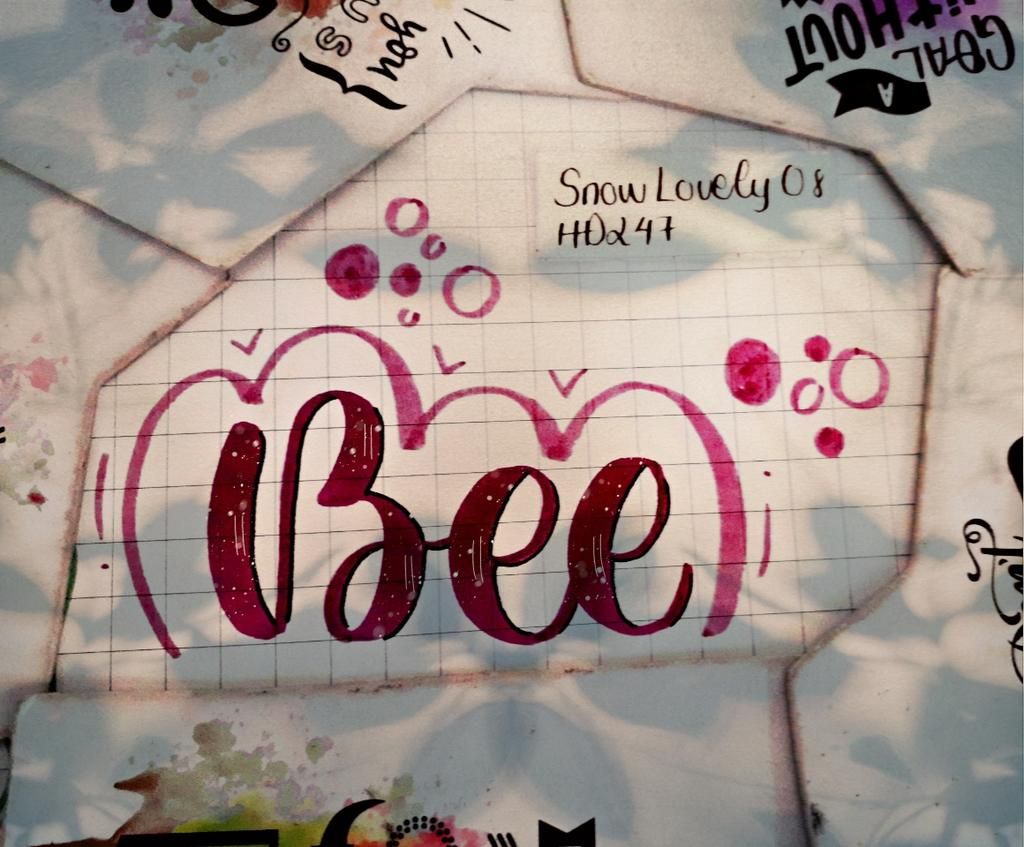 you
us
GOAL
WITHOUT
A
Snow Lovely 08
HD247
Bee